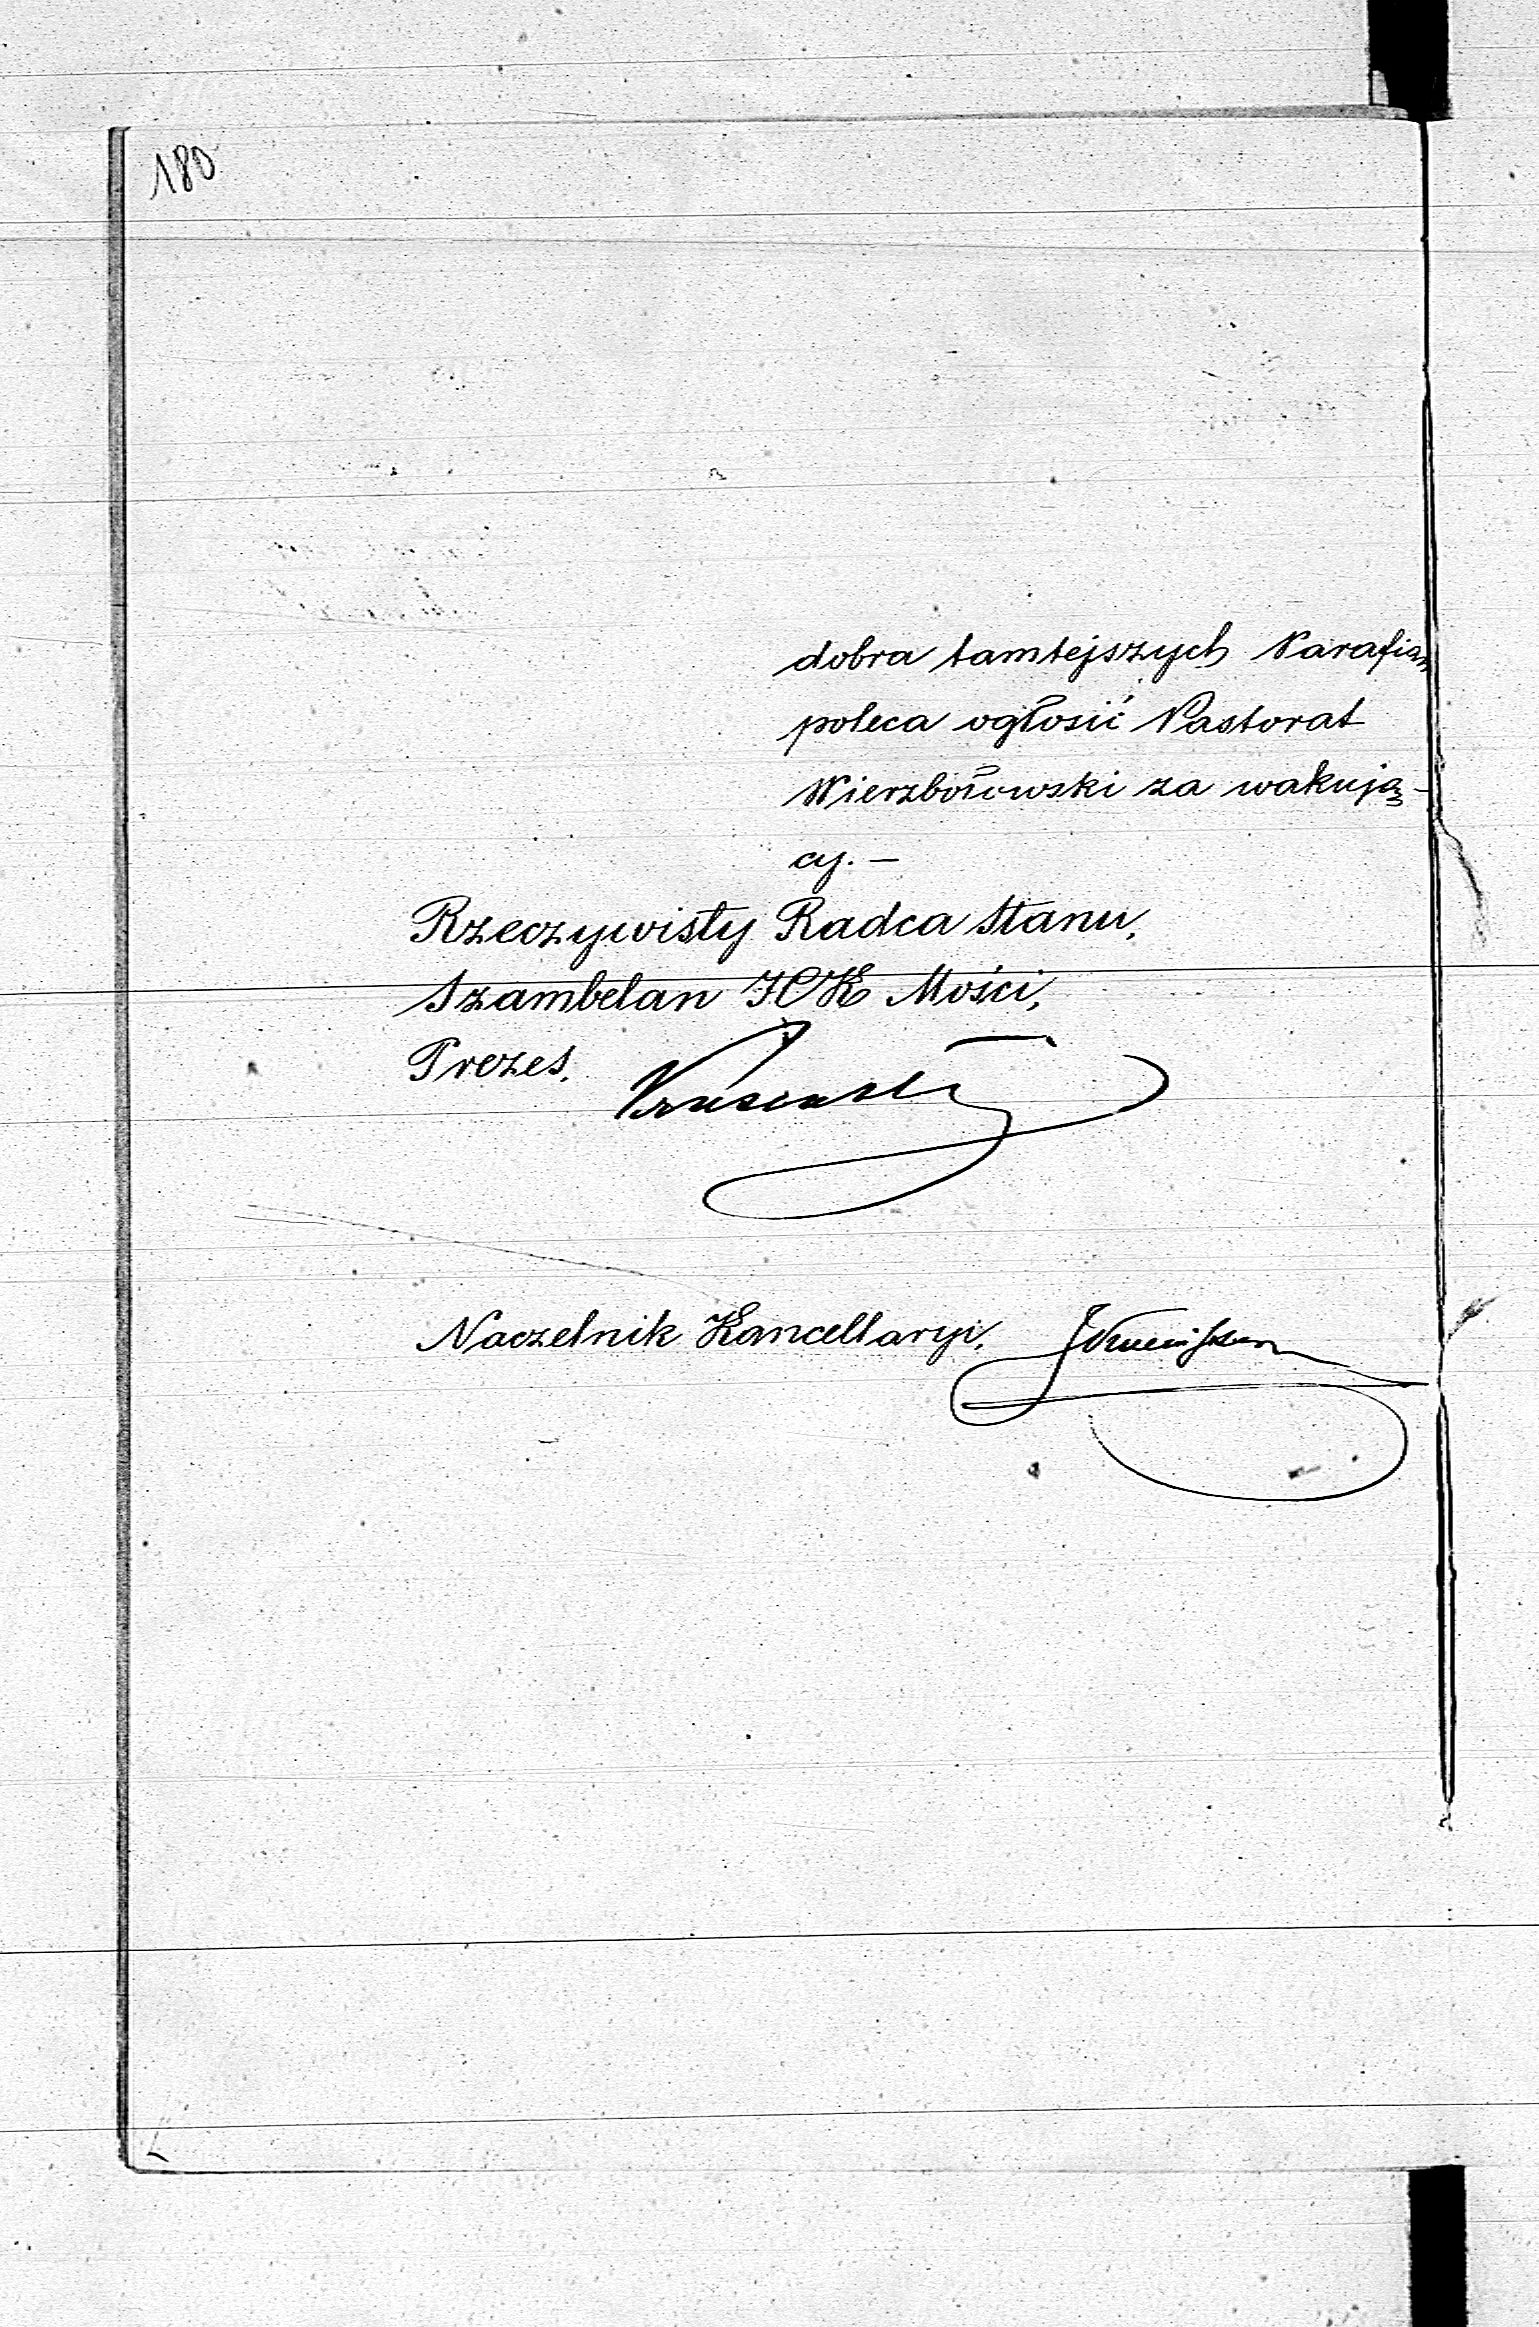 180
dobra tamtejszych Parafian
poleca ogłosić Pastorat
Wierzbołowski za wakują-
cy. —
Rzeczywisty Radca Stanu,
Szambelan JCK Mości,
Prezes.
Naczelnik Kancellaryi,